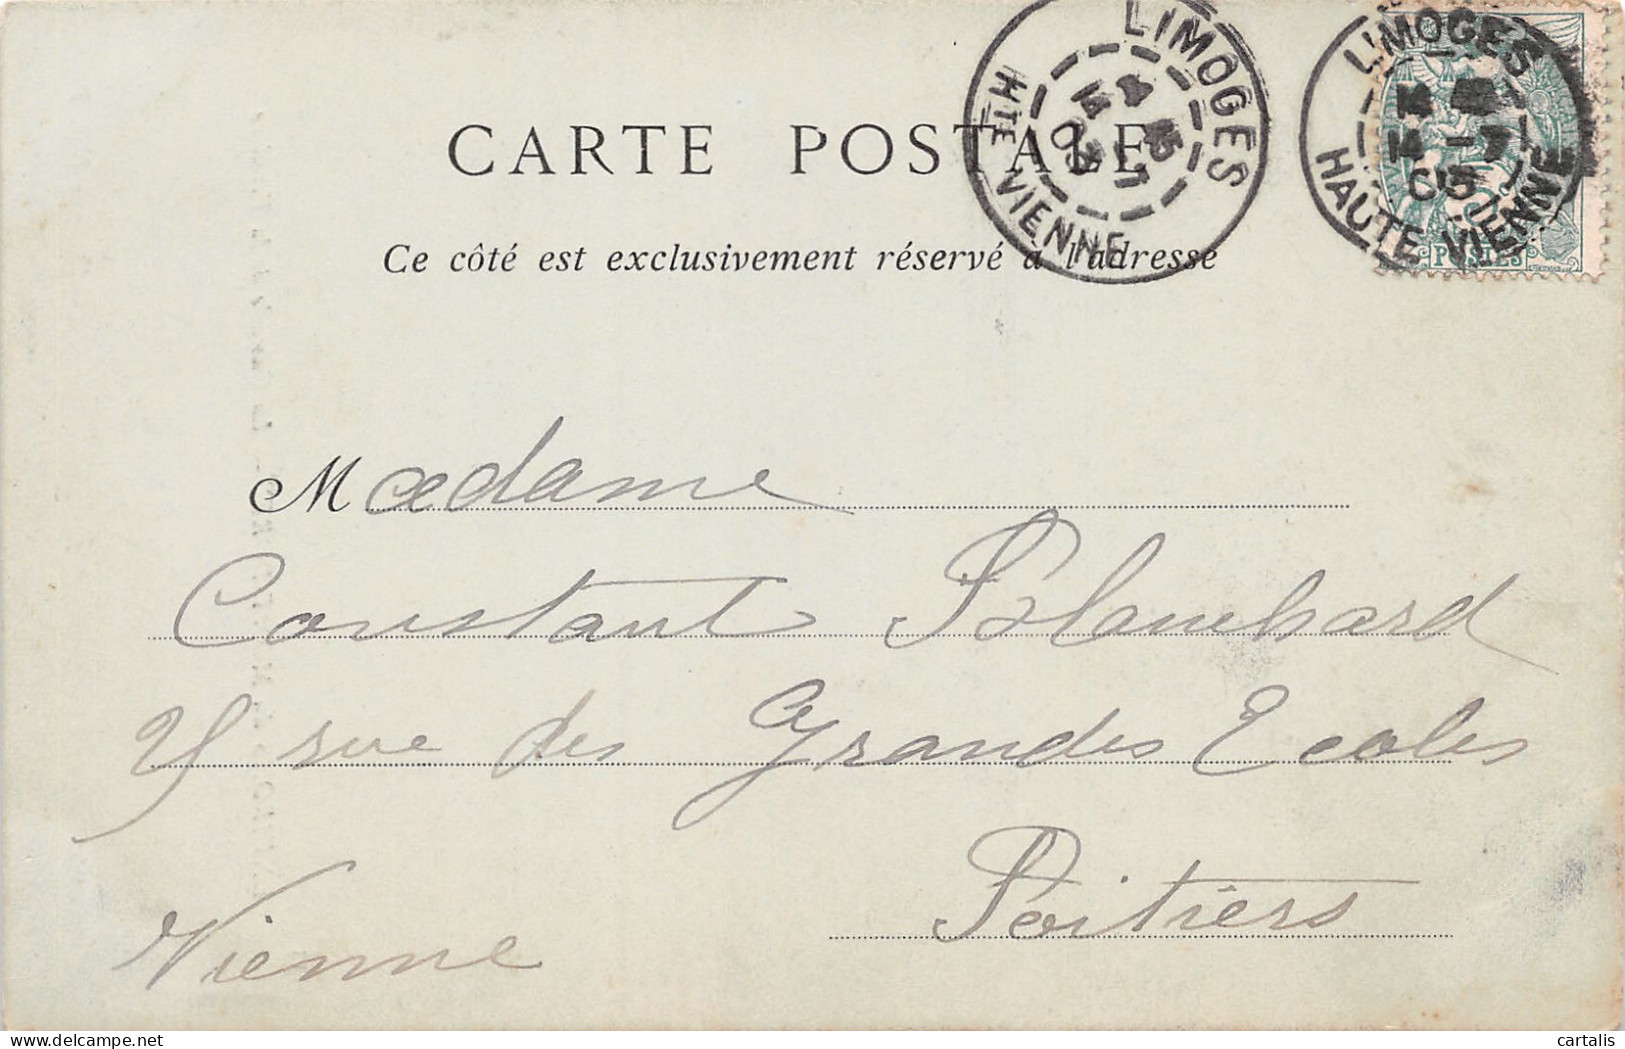 LIMOGES
HTE VIENNE
03
LIMOGES
HAUTE VIENNE
14 -7
03
POSTES
CARTE POSTALE
Ce côté est exclusivement réservé à l'adresse
Madame
Constant Blanchard
rue des Grandes Ecoles
Poitiers
Vienne
delcampe.net
cartalis